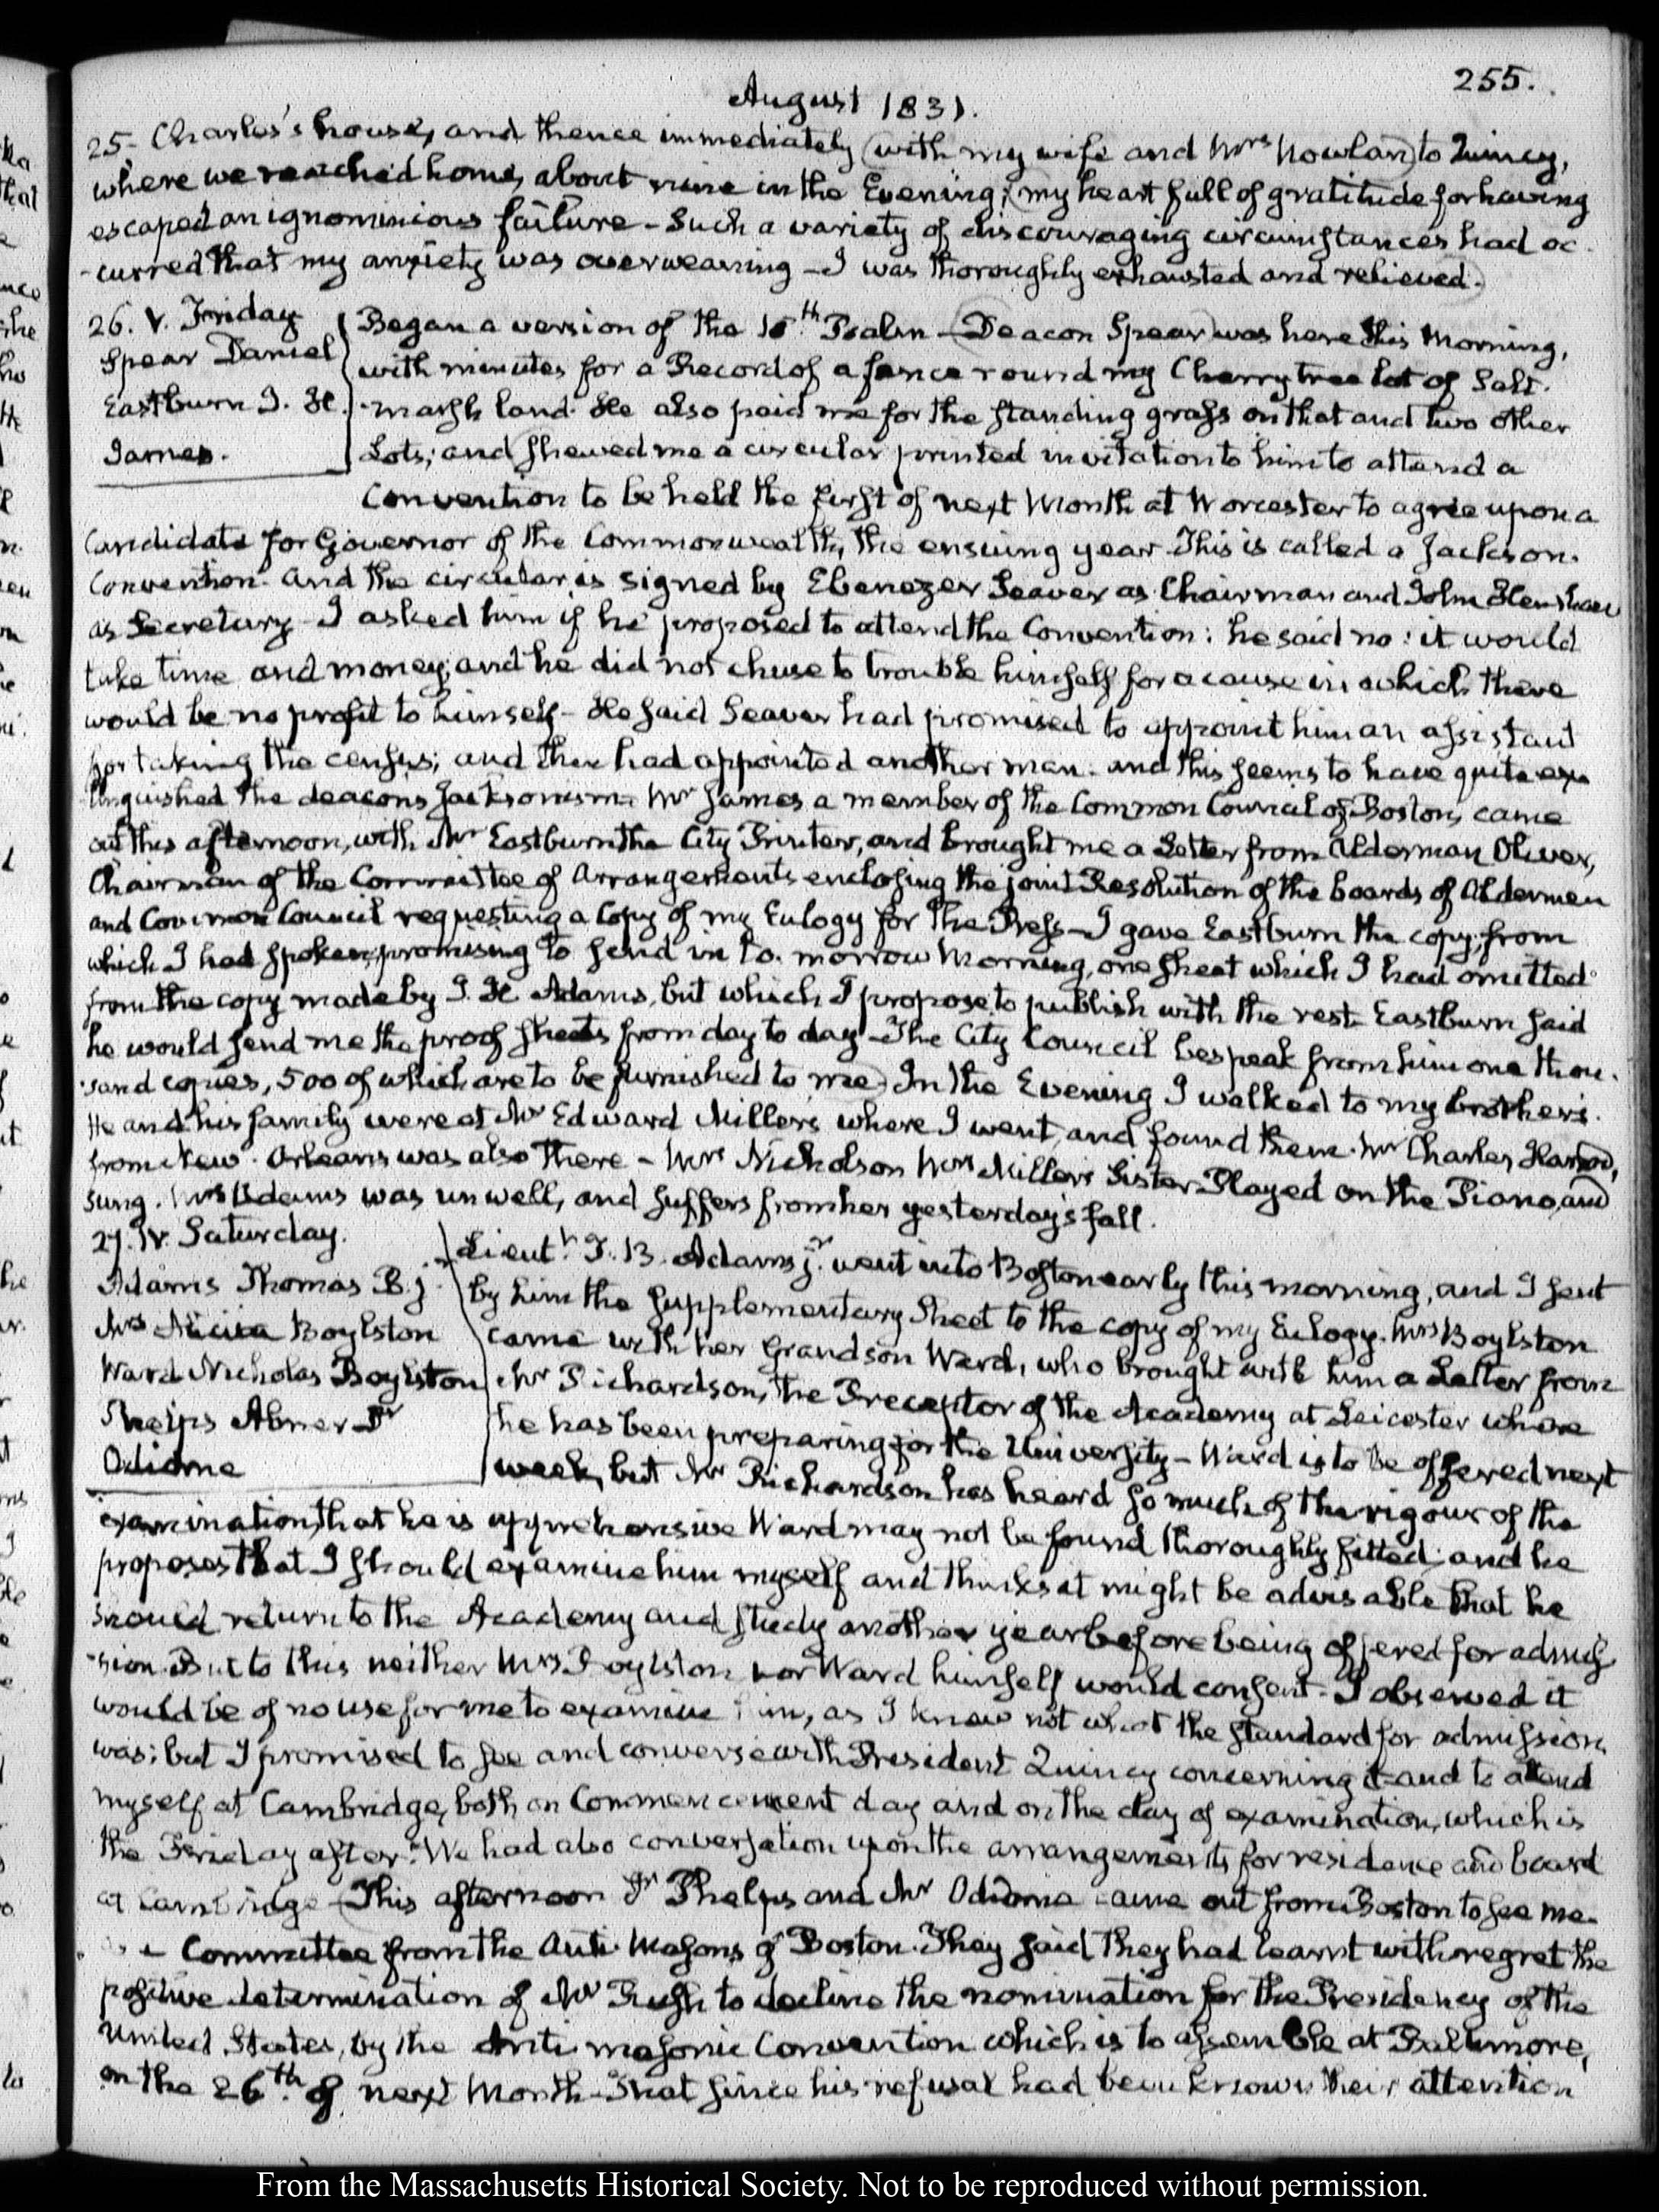 255.
August 1831.
25. Charles's house, and thence immediately (with my wife and Mrs Nowlan) to Quincy,
where we reached home, about nine in the Evening; (my heart full of gratitude for having
escaped an ignominious failure - Such a variety of discouraging circumstances had oc-
-curred that my anxiety was overweaning - I was thoroughly exhausted and relieved.)
26. V. Friday
Spear Daniel
Eastburn J. H.
James.
Began a version of the 15th Psalm - Deacon Spear was here this Morning,
with minutes for a Record of a fence round my Cherry tree lot of Salt-
-marsh land. He also paid me for the standing grass on that and two other
Lots; and shewed me a circular printed invitation to him to attend a
Convention to be held the first of next Month at Worcester to agree upon a
Candidate for Governor of the Commonwealth, the ensuing year. This is called a Jackson
Convention. And the circular is signed by Ebenezer Seaver as Chairman and John Henshaw
as Secretary - I asked him if he proposed to attend the Convention: he said no: it would
take time and money; and he did not chuse to trouble himself for a cause in which there
would be no profit to himself - He said Seaver had promised to appoint him an assistant
for taking the census; and then had appointed another man. and this seems to have quite ex-
tinguished the deacons Jacksonism. Mr James a member of the Common Council of Boston, came
out this afternoon, with Mr Eastburn the City Printer, and brought me a Letter from Alderman Oliver,
Chairman of the Committee of Arrangements enclosing the joint Resolution of the boards of Aldermen
and Common Council requesting a Copy of my Eulogy for the Press - I gave Eastburn the copy, from
which I had spoken, promising to send in to-morrow Morning, one sheet which I had omitted
from the copy made by I. H. Adams, but which I propose to publish with the rest. Eastburn said
he would send me the proof sheets from day to day - The City Council bespeak from him one thou-
-sand copies, 500 of which are to be furnished to me) In the Evening I walked to my brother's.
He and his family were at Mr Edward Miller's where I went, and found them. Mr Charles Harrod,
from New-Orleans was also there - Mrs Nicholson Mrs Miller's Sister Played on the Piano, and
sung. Mrs Adams was unwell, and suffers from her yesterday's fall.
27. IV. Saturday.
Adams Thomas B. j.
Mrs Alicia Boylston
Ward Nicholas Boylston
Phelps Abner Dr
Odiorne
Lieutt T. B. Adams jr. went into Boston early this morning, and I sent
by him the supplementary Sheet to the copy of my Eulogy. Mrs Boylston
came with her Grandson Ward, who brought with him a Letter from
Mr Richardson, the Preceptor of the Academy at Leicester where
he has been preparing for the University - Ward is to be offered next
week, but Mr Richardson has heard so much of the rigour of the
examination, that he is apprehensive Ward may not be found thoroughly fitted; and he
proposes that I should examine him myself and thinks it might be advisable that he
should return to the Academy and study another year before being offered for admis-
-sion. But to this neither Mrs Boylston nor Ward himself would consent. I observed it
would be of no use for me to examine him, as I knew not what the standard for admission
was; but I promised to see and converse with President Quincy concerning it and to attend
myself at Cambridge, both on Commencement day and on the day of examination, which is
the Friday after. We had also conversation upon the arrangements for residence and board
at Cambridge - (This afternoon Dr Phelps and Mr Odiorne came out from Boston to see me
as a Committee from the Anti-Masons of Boston. They said they had learnt with regret the
positive determination of Mr Rush to decline the nomination for the Presidency of the
United States, by the Anti-masonic Convention which is to assemble at Baltimore,
on the 26th of next Month - That since his refusal had been known their attention
From the Massachusetts Historical Society. Not to be reproduced without permission.